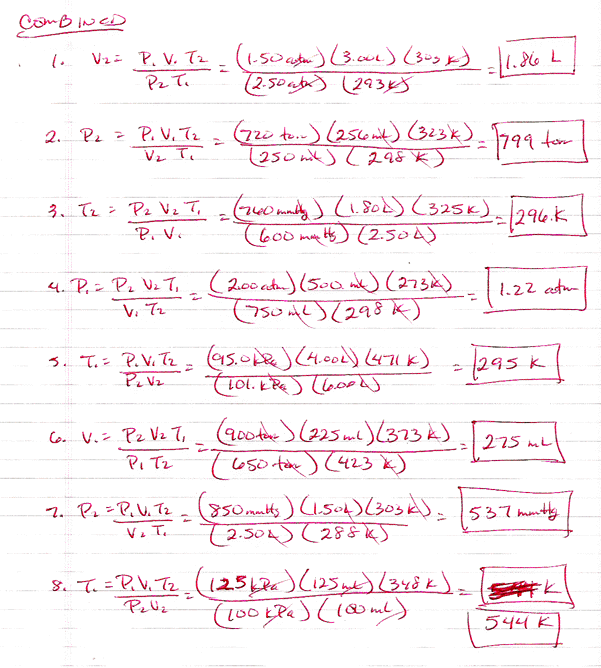 COMBINED
1. V₂ = P₁ V₁ T₂ / P₂ T₁ = (1.50 atm) (3.00L) (303 K) / (2.50 atm) (293K) = 1.86 L
2. P₂ = P₁ V₁ T₂ / V₂ T₁ = (720 torr) (256 mL) (323K) / (250 mL) (298 K) = 799 torr
3. T₂ = P₂ V₂ T₁ / P₁ V₁ = (760 mmHg) (1.80L) (325K) / (600 mmHg) (2.50L) = 296.K
4. P₁ = P₂ V₂ T₁ / V₁ T₂ = (2.00 atm) (500. mL) (273K) / (750 mL) (298 K) = 1.22 atm
5. T₁ = P₁ V₁ T₂ / P₂ V₂ = (95.0 kPa) (4.00L) (471 K) / (101. kPa) (6.00L) = 295 K
6. V₁ = P₂ V₂ T₁ / P₁ T₂ = (900 torr) (225 mL) (373 K) / (650 torr) (423 K) = 275 mL
7. P₂ = P₁ V₁ T₂ / V₂ T₁ = (850 mmHg) (1.50L) (303 K) / (2.50L) (288 K) = 537 mmHg
8. T₁ = P₁ V₁ T₂ / P₂ V₂ = (125 kPa) (125 mL) (348 K) / (100 kPa) (100 mL) = K
544 K